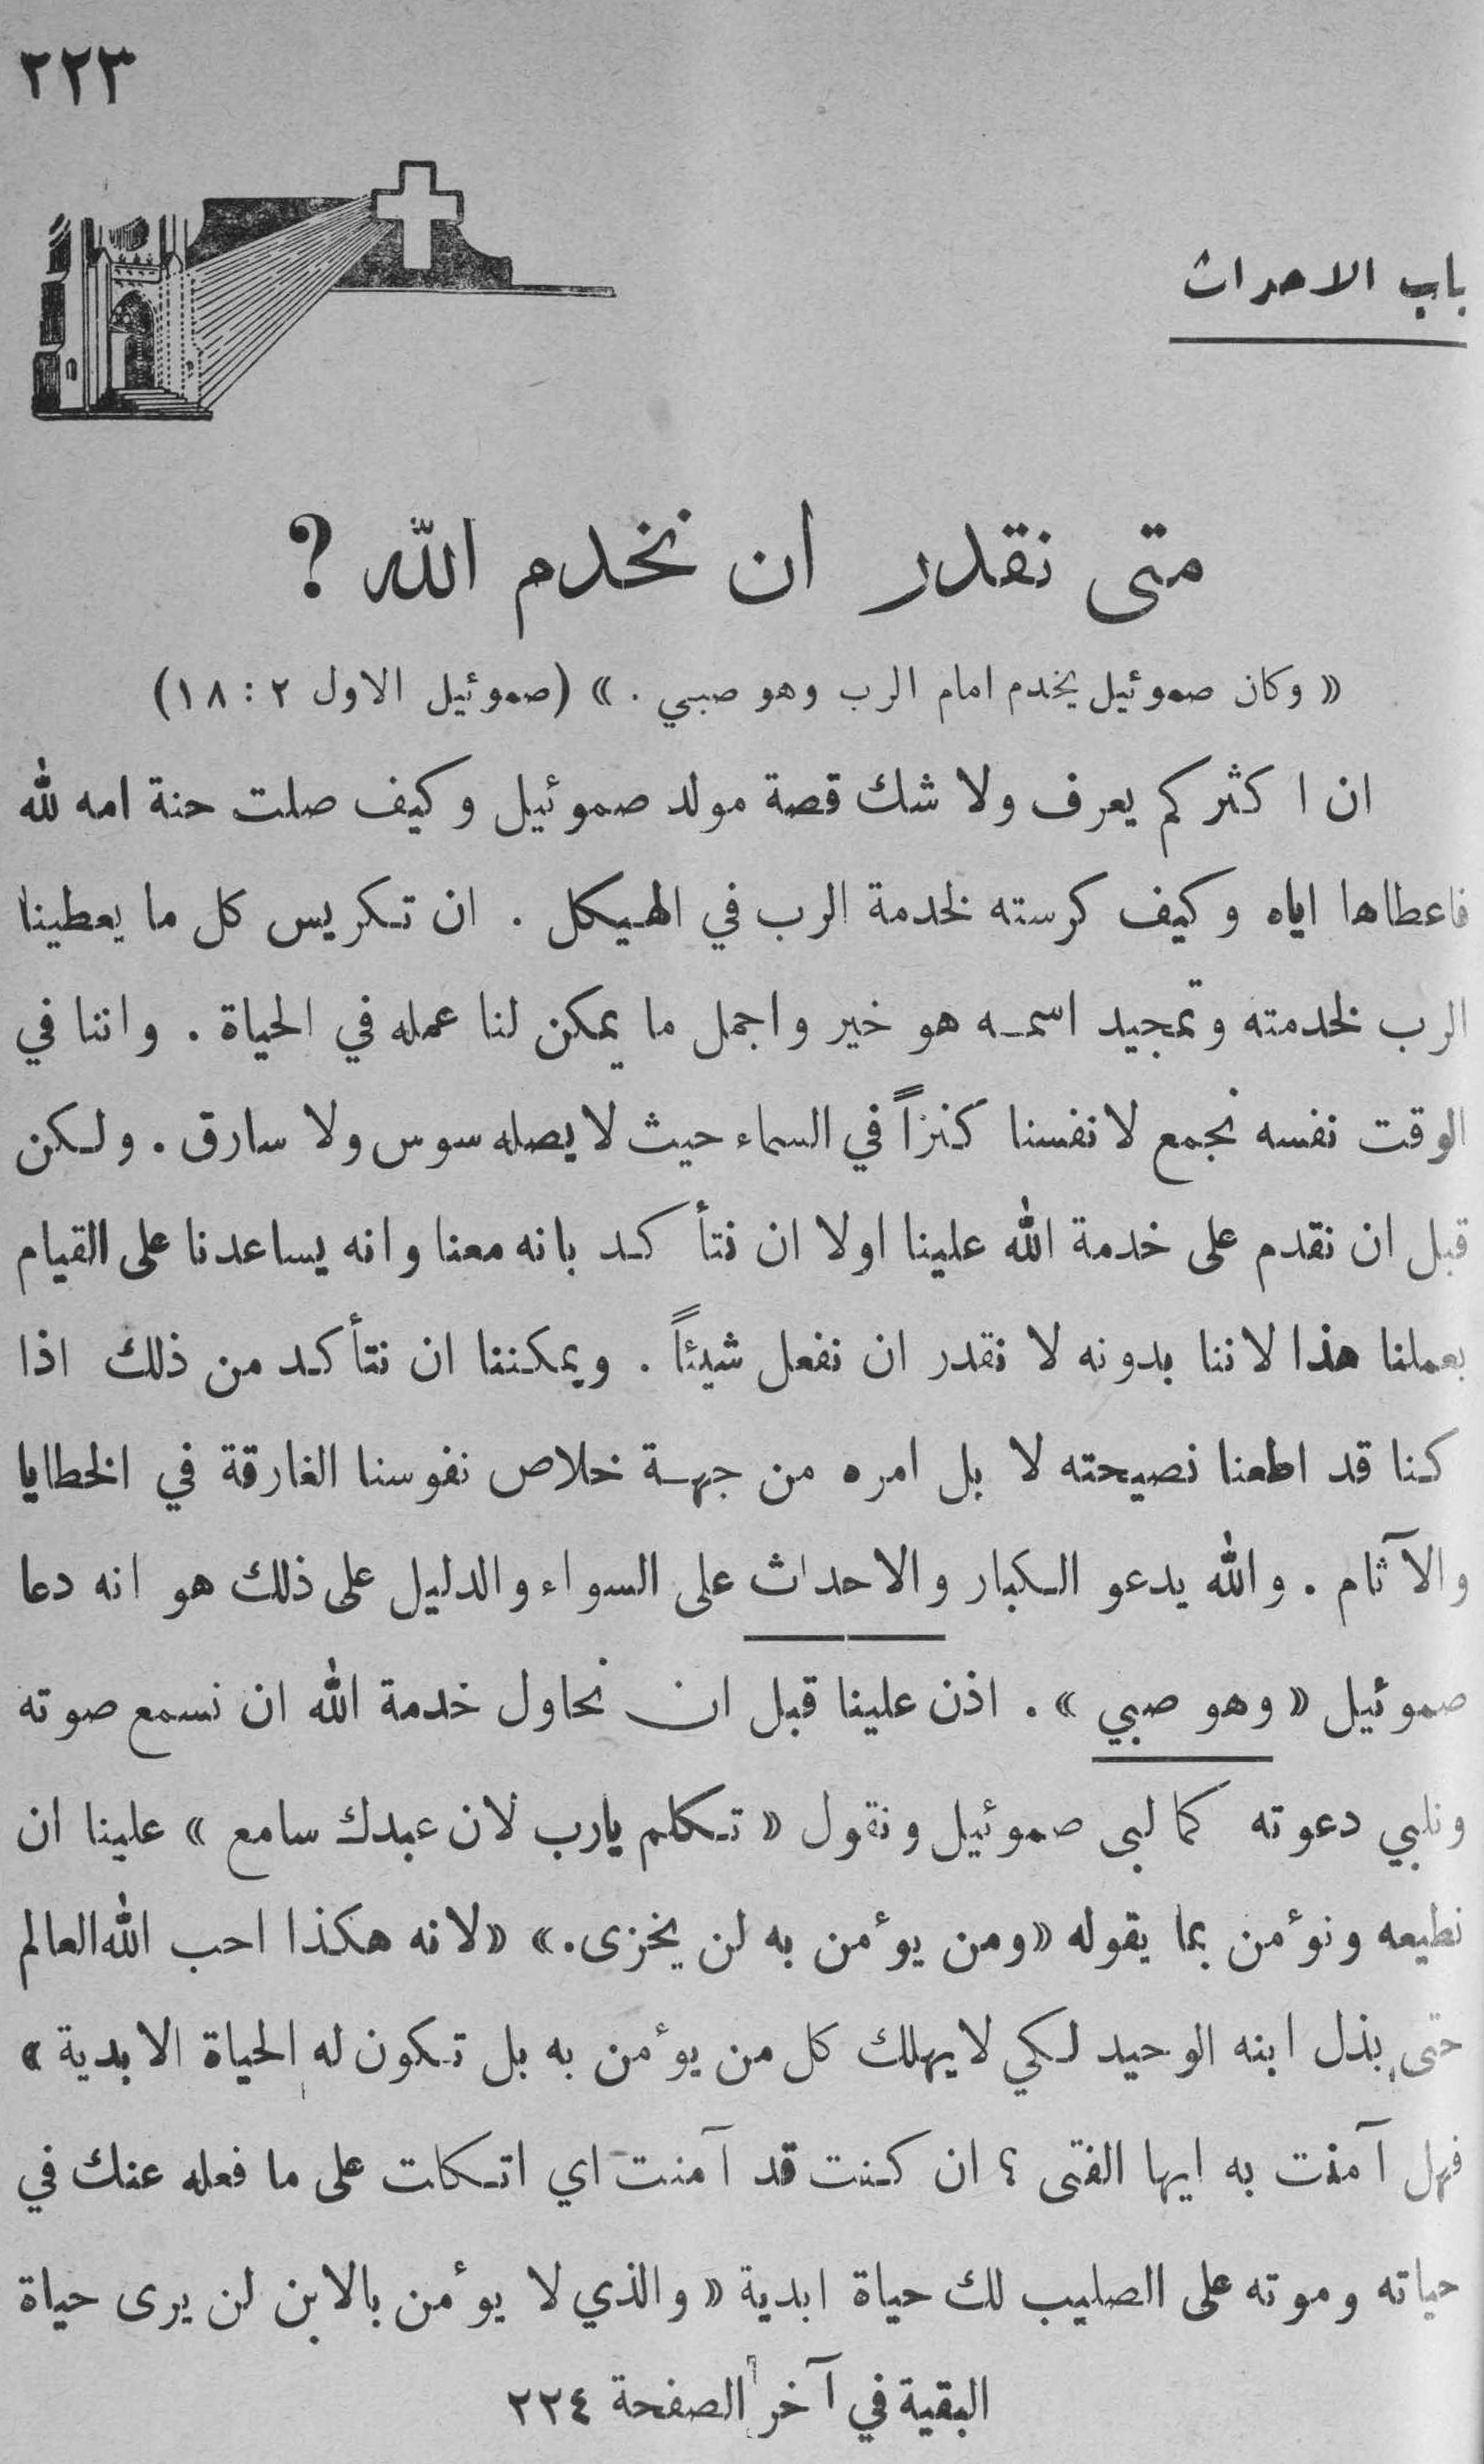 ٢٢٣
باب الاحداث
متى نقدر ان نخدم الله ?
« وكان صموئيل يخدم امام الرب وهو صبي . » (صموئيل الاول ٢ : ١٨)
ان اكثركم يعرف ولا شك قصة مولد صموئيل وكيف صلت حنة امه لله
فاعطاها اياه وكيف كرسته لخدمة الرب في الهيكل . ان تكريس كل ما يعطينا
الرب لخدمته وتمجيد اسمه هو خير واجمل ما يمكن لنا عمله في الحياة . واننا في
الوقت نفسه نجمع لانفسنا كنزاً في السماء حيث لا يصله سوس ولا سارق . ولكن
قبل ان نقدم على خدمة الله علينا اولا ان نتأكد بانه معنا وانه يساعدنا على القيام
بعملنا هذا لاننا بدونه لا نقدر ان نفعل شيئاً . ويمكننا ان نتأكد من ذلك اذا
كنا قد اطعنا نصيحته لا بل امره من جهة خلاص نفوسنا الغارقة في الخطايا
والآثام . والله يدعو الكبار والاحداث على السواء والدليل على ذلك هو انه دعا
صموئيل « وهو صبي » . اذن علينا قبل ان نحاول خدمة الله ان نسمع صوته
ونلبي دعوته كما لبى صموئيل ونقول « تكلم يارب لان عبدك سامع » علينا ان
نطيعه ونؤمن بما يقوله «ومن يؤمن به لن يخزى.» «لانه هكذا احب الله العالم
حتى بذل ابنه الوحيد لكي لا يهلك كل من يؤمن به بل تكون له الحياة الابدية »
فهل آمنت به ايها الفتى ؟ ان كنت قد آمنت اي اتكلت على ما فعله عنك في
حياته وموته على الصليب لك حياة ابدية « والذي لا يؤمن بالابن لن يرى حياة
البقية في آخر الصفحة ٢٢٤